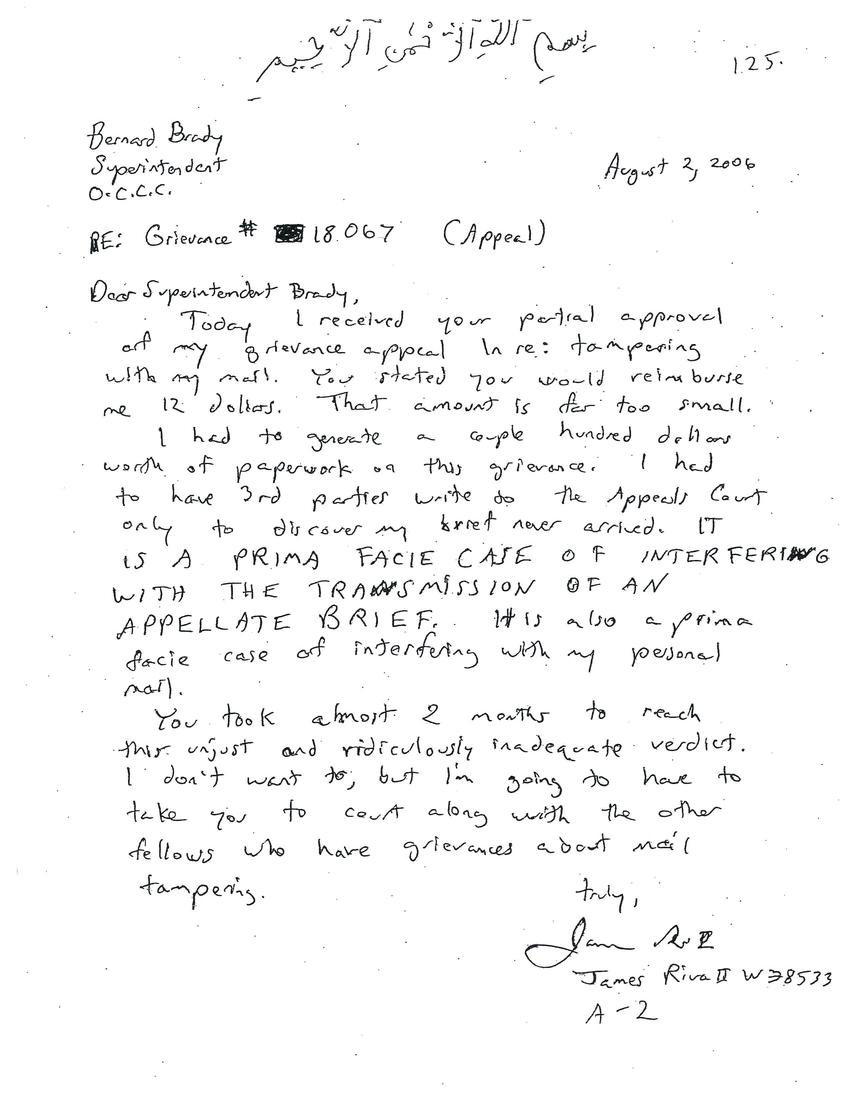 بسم الله الرحمن الرحيم
125.
Bernard Brady
Superintendent
O.C.C.C.
August 2, 2006
RE: Grievance # 18.067 (Appeal)
Dear Superintendent Brady,
Today I received your partial approval
of my grievance appeal In re: tampering
with my mail. You stated you would reimburse
me 12 dollars. That amount is far too small.
I had to generate a couple hundred dollars
worth of paperwork on this grievance. I had
to have 3rd parties write to the Appeals Court
only to discover my brief never arrived. IT
IS A PRIMA FACIE CASE OF INTERFERING
WITH THE TRANSMISSION OF AN
APPELLATE BRIEF. It is also a prima
facie case of interfering with my personal
mail.
You took almost 2 months to reach
this unjust and ridiculously inadequate verdict.
I don't want to, but I'm going to have to
take you to court along with the other
fellows who have grievances about mail
tampering.
truly,
James Riva II W38533
A-2